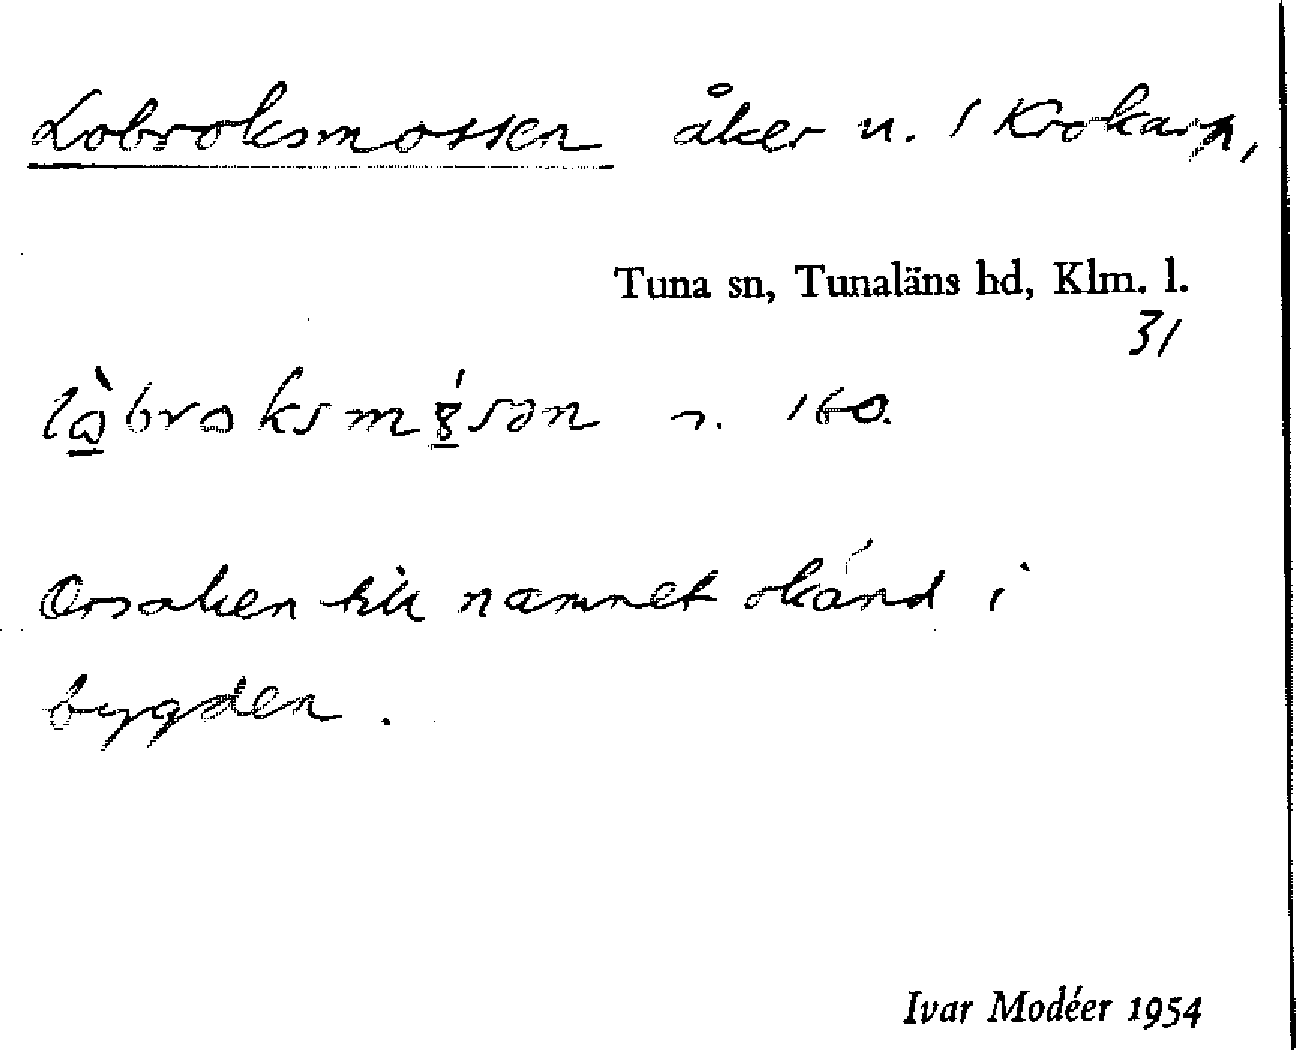 Lobroksmossen åker n. 1 Krokarp,
Tuna sn, Tunaläns hd, Klm. l.
31
n. 160.
Orsaken till namnet okänd i
bygden.
Ivar Modéer 1954